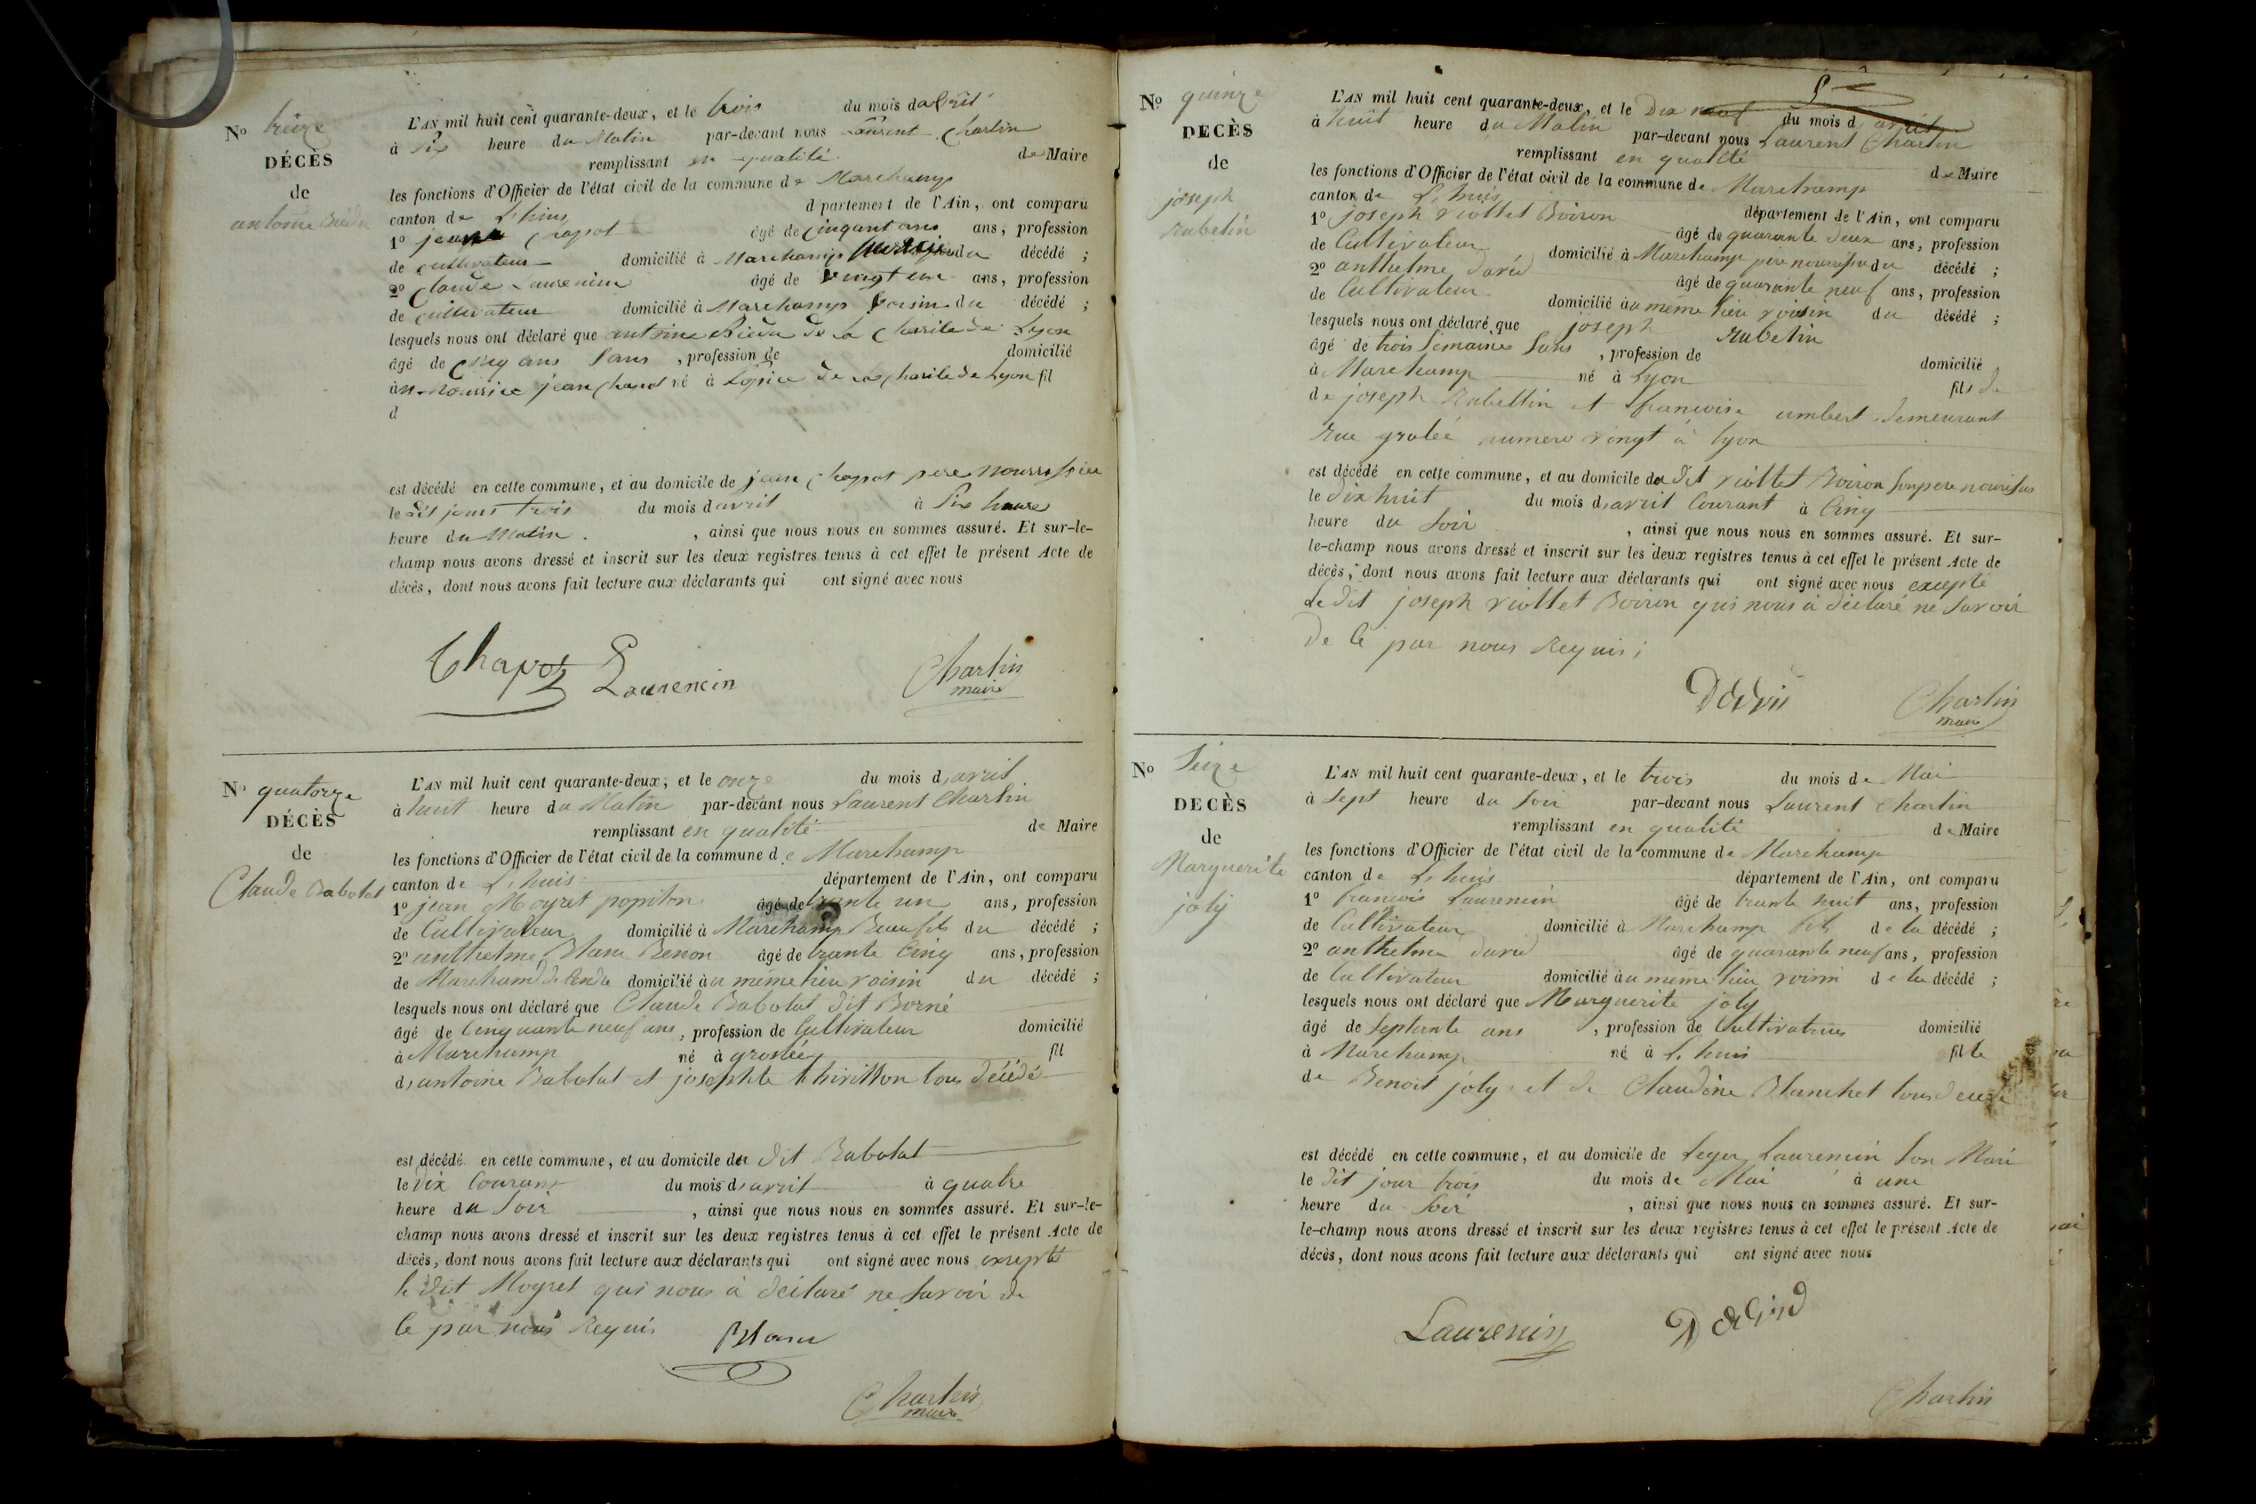 No treize
DÉCÈS
de
antoine
L'AN mil huit cent quarante-deux, et le trois du mois d avril
à Six heure du Matin par-devant nous Laurent Charlin
remplissant en qualité de Maire
les fonctions d'Officier de l'état civil de la commune de Marchamp
canton de Lhuis département de l'Ain, ont comparu
1o jean Chapot âgé de cinquant ans ans, profession
de cultivateur domicilié à Marchamp du décédé ;
2o Claude Laurencin âgé de vingt un ans, profession
de cultivateur domicilié à Marchamp voisin du décédé ;
lesquels nous ont déclaré que antoine de la Charité de Lyon
âgé de Cinq ans Sans , profession de domicilié
à nourrice jean Chapot né à de la charité de Lyon fil
d
est décédé en cette commune, et au domicile de jean Chapot pere nourrissier
le dit jour trois du mois d avril à Six heure
heure du Matin , ainsi que nous nous en sommes assuré. Et sur-le-
champ nous avons dressé et inscrit sur les deux registres tenus à cet effet le présent Acte de
décès, dont nous avons fait lecture aux déclarants qui ont signé avec nous
Chapot Laurencin Charlin
maire
No quatorze
DÉCÈS
de
Claude Babolat
L'AN mil huit cent quarante-deux, et le onze du mois d avril
à huit heure du Matin par-devant nous Laurent Charlin
remplissant en qualité de Maire
les fonctions d'Officier de l'état civil de la commune de Marchamp
canton de Lhuis département de l'Ain, ont comparu
1o jean Moyret âgé de trente un ans, profession
de Cultivateur domicilié à Marchamp Beau fils du décédé ;
2o anthelme Blanc Benon âgé de trante Cinq ans, profession
de Marchand domicilié à u méme lieu voisin du décédé ;
lesquels nous ont déclaré que Claude Babolat dit Borné
âgé de Cinquante neuf ans , profession de Cultivateur domicilié
à Marchamp né à groslée fil
d antoine Babolat et josephte tous décédé
est décédé en cette commune, et au domicile du dit Babolat
le Dix Courant du mois d avril à quatre
heure du Soir , ainsi que nous nous en sommes assuré. Et sur-le-
champ nous avons dressé et inscrit sur les deux registres tenus à cet effet le présent Acte de
décès, dont nous avons fait lecture aux déclarants qui ont signé avec nous excepté
le dit Moyret qui nous à déclaré ne Savoir de
Ce par nous Requis Blanc
Charlin
maire
No quinze
DECÈS
de
joseph
Rubelin
L'AN mil huit cent quarante-deux, et le Dix neuf du mois d avril
à huit heure du Matin par-devant nous Laurent Charlin
remplissant en qualité de Maire
les fonctions d'Officier de l'état civil de la commune de Marchamp
canton de Lhuis département de l'Ain, ont comparu
1o joseph viollet Boiron âgé de quarante deux ans, profession
de Cultivateur domicilié à Marchamp pere du décédé ;
2o anthelme David âgé de quarante neuf ans, profession
de Cultivateur domicilié à u méme lieu voisin du décédé ;
lesquels nous ont déclaré que joseph Rubelin
âgé de trois Semaines Sans , profession de domicilié
à Marchamp né à Lyon fils de
de joseph Rubellin et francoise umbert demeurant
Rue grolée numero vingt à lyon
est décédé en cette commune, et au domicile du Dit viollet Boiron Son pere
le dix huit du mois d avril Courant à Cinq
heure du Soir , ainsi que nous nous en sommes assuré. Et sur-
le-champ nous avons dressé et inscrit sur les deux registres tenus à cet effet le présent Acte de
décès, dont nous avons fait lecture aux déclarants qui ont signé avec nous excepté
Le dit joseph viollet Boiron qui nous à déclaré ne Savoir
De Ce par nous Requis ;
David Charlin
maire
No Seize
DECÈS
de
Marguerite
joly
L'AN mil huit cent quarante-deux, et le trois du mois de Mai
à Sept heure du Soir par-devant nous Laurent Charlin
remplissant en qualité de Maire
les fonctions d'Officier de l'état civil de la commune de Marchamp
canton de Lhuis département de l'Ain, ont comparu
1o francois Laurencin âgé de trante huit ans, profession
de Cultivateur domicilié à Marchamp fils de la décédé ;
2o anthelme David âgé de quarante neuf ans, profession
de Cultivateur domicilié à u méme lieu voisin de la décédé ;
lesquels nous ont déclaré que Marguerite joly
âgé de Septante ans , profession de Cultivatrice domicilié
à Marchamp né à Lhuis fil le
de Benoit joly et de Claudine Blanchet tous
est décédé en cette commune, et au domicile de Leger Laurencin Son Mari
le dit jour trois du mois de Mai à une
heure du Soir , ainsi que nous nous en sommes assuré. Et sur-
le-champ nous avons dressé et inscrit sur les deux registres tenus à cet effet le présent Acte de
décès, dont nous avons fait lecture aux déclarants qui ont signé avec nous
Laurencin David
Charlin